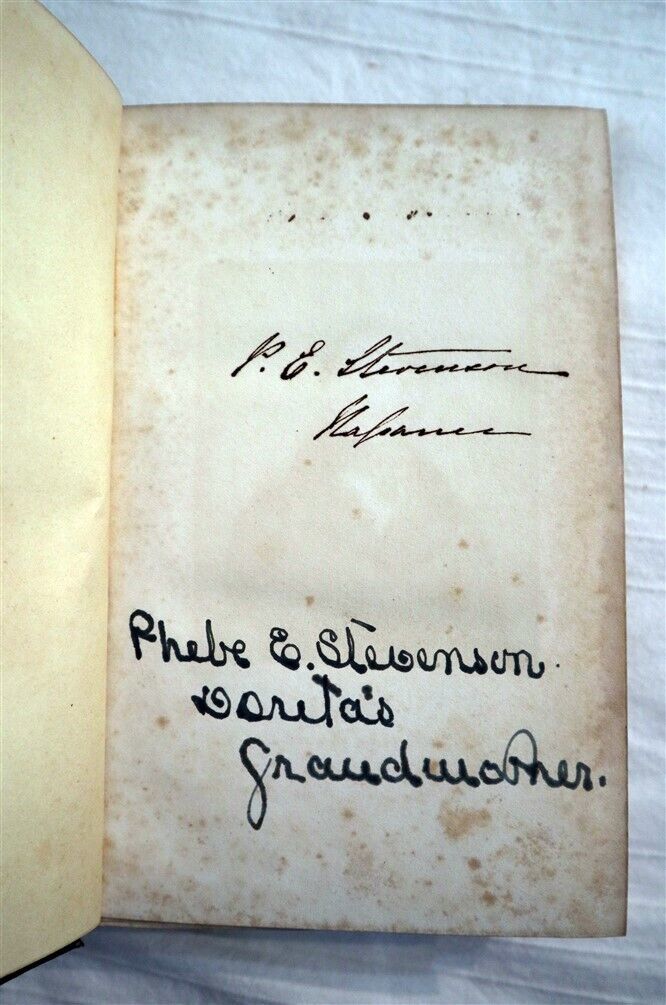 P. E. Stevenson
Napanee
Phebe E. Stevenson.
Dorita's
Grandmother.